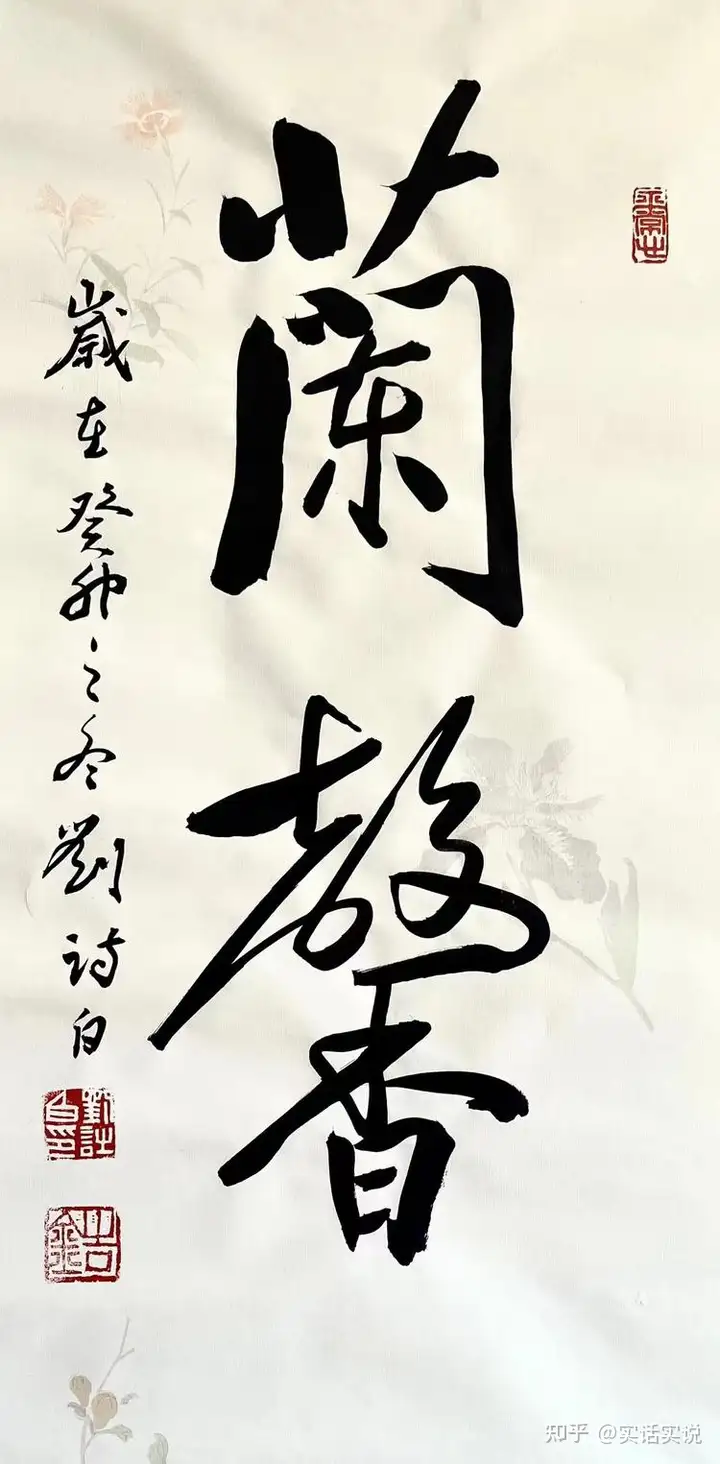 蘭馨
歲在癸卯之冬劉詩白
知乎 @实话实说